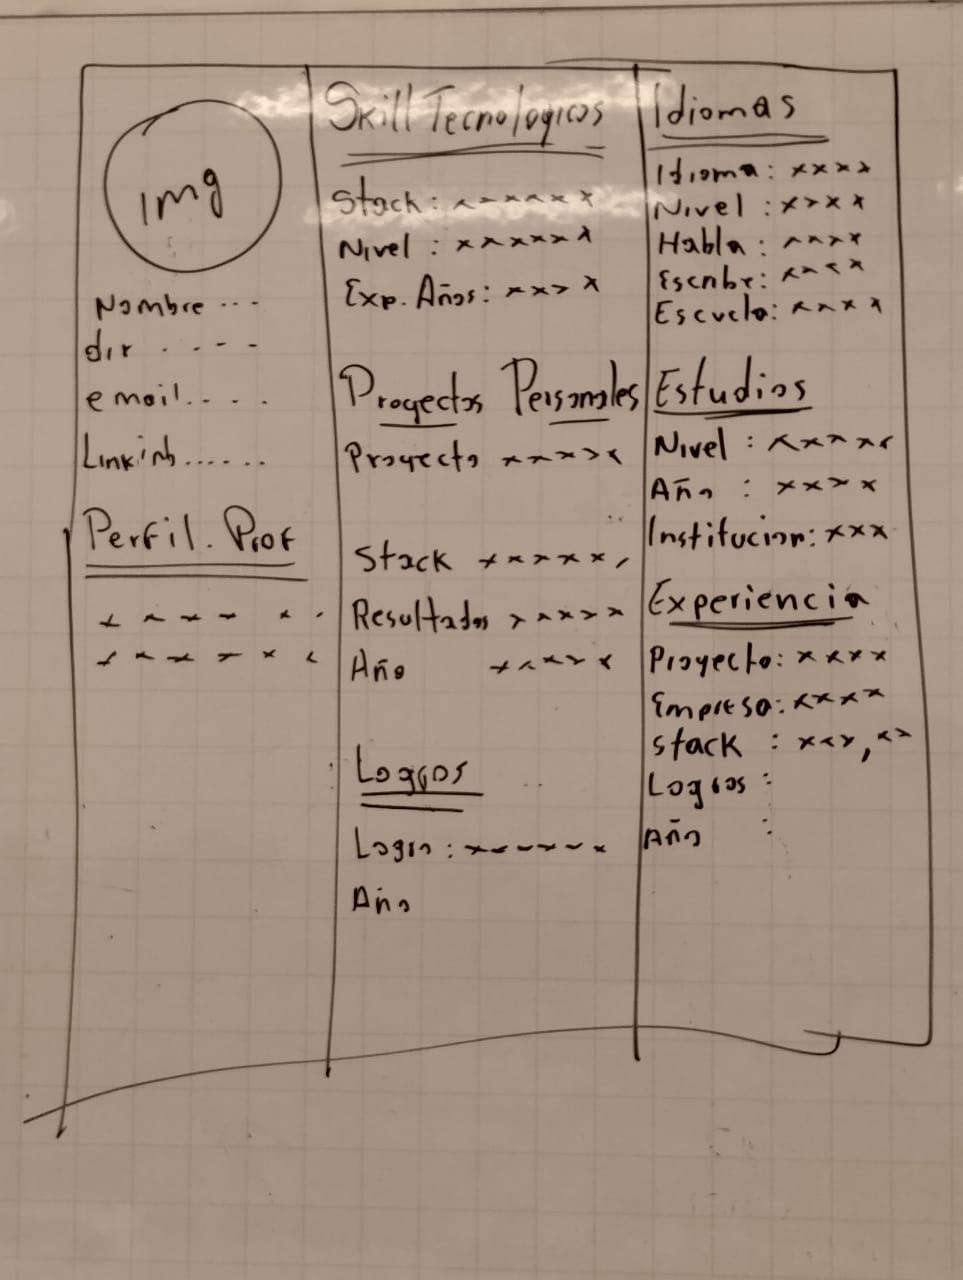 img
Nombre ...
dir . . - - -
email. . . .
Linkinb......
Perfil. Prof
x x x x x .
x x x x x x
Skill Tecnologicos
Stack: x x x x x x
Nivel : x x x x x x
Exp. Años: x x x x
Proyectos Personales
Proyecto x x x x x
Stack x x x x x,
Resultados x x x x x
Año x x x x x
Logros
Logro : x x x x x x
Año
Idiomas
Idioma: x x x x
Nivel : x x x x
Habla : x x x x
Escribe: x x x x
Escucho: x x x x
Estudios
Nivel : x x x x x
Año : x x x x
Institucion: x x x
Experiencia
Proyecto: x x x x
Empresa: x x x x
stack : x x x, x x
Logros :
Año :